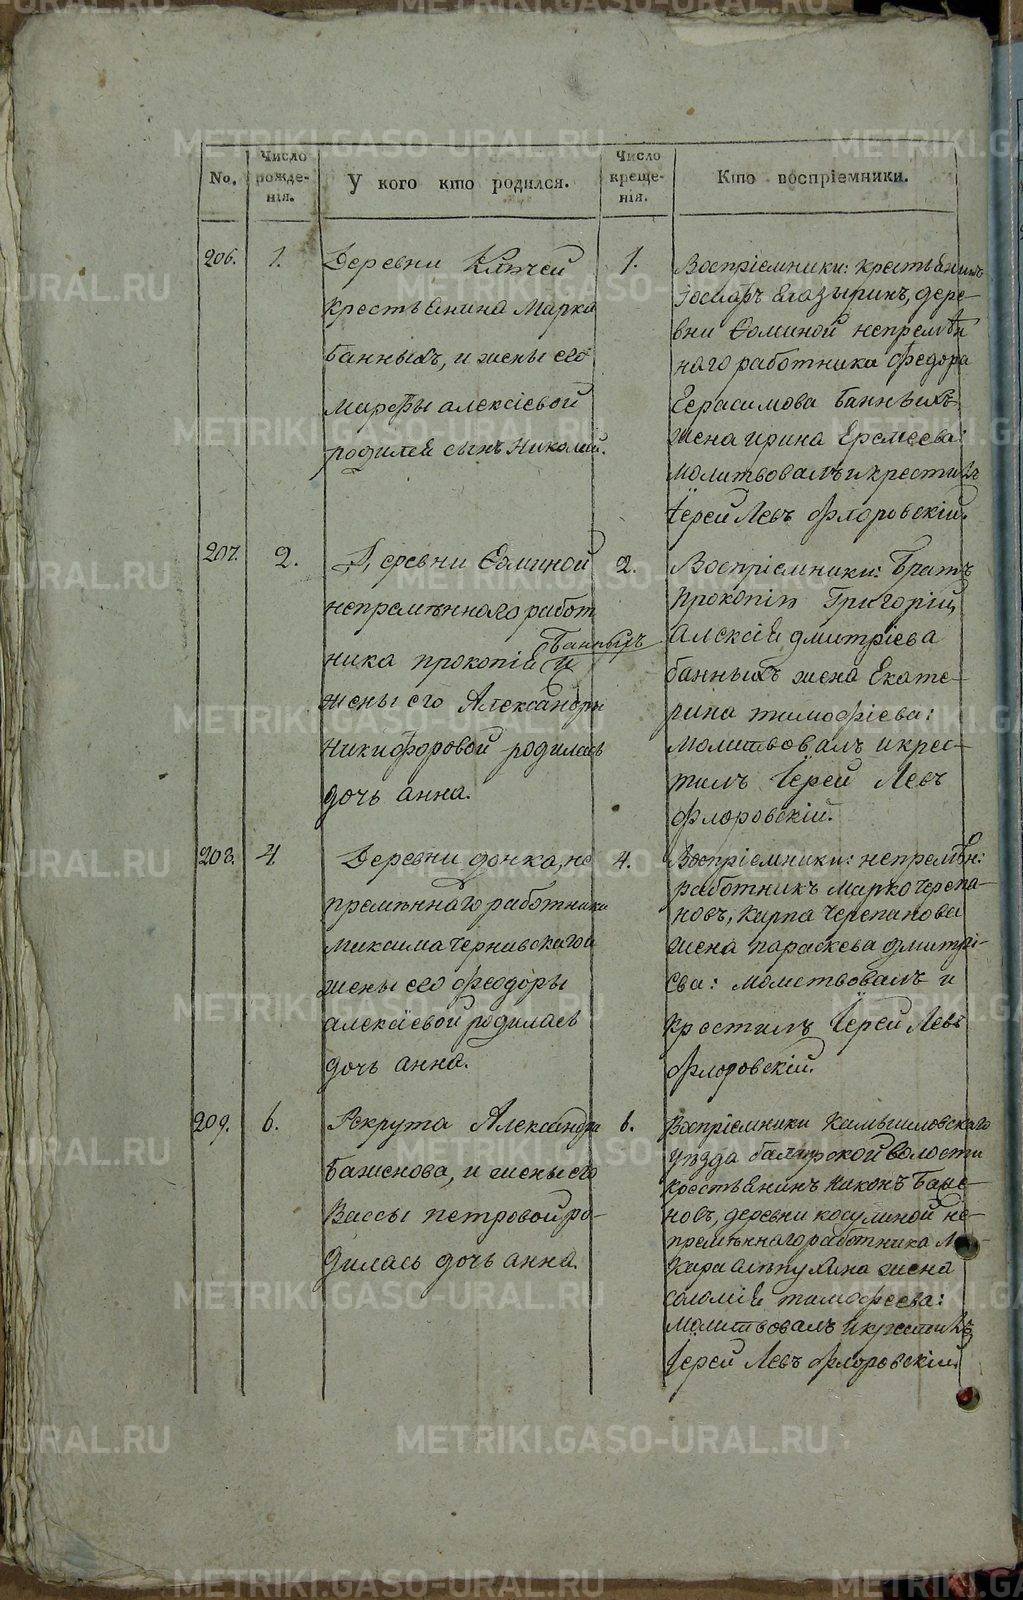 No.
Число рожде-нія.
У кого кто родился.
Число креще-нія.
Кто воспріемники.
206.
1.
Деревни Ключей
крестьянина Марка
банныхъ, и жены его
Марфы алексіевой
родился сынъ Николай.
1.
Воспріемники: крестьянинъ
Елазыринъ, дере-
вни Ѳоминой непремѣн
наго работника Федора
Герасимова банныхъ
жена ирина Еремеева:
молитвовалъ и крестилъ
Іерей Левъ Флоровскій.
207.
2.
Деревни Ѳоминой
непремѣннаго работ
ника прокопія Банныхъ и
жены его Александры
Никифоровой родилась
дочь анна.
2.
Воспріемники: Братъ
Прокопія Григорій,
Алексія дмитріева
банныхъ жена Екате-
рина тимофіева:
Молитвовалъ и крес-
тилъ Іерей Левъ
Флоровскій.
208.
4.
Деревни донка, не
премѣннаго работника
Максима Чернавскаго и
жены его Феодоры
алексіевой родилась
дочь анна.
4.
Воспріемники: непремѣн:
работникъ Марко Черепа-
новъ, Карпа Черепанова
жена параскева дмитрі-
ева: молитвовалъ и
крестилъ Іерей Левъ
Флоровскій.
209.
6.
Рекрута Александра
Баженова, и жены его
Вассы петровой ро-
дилась дочь анна.
6.
Воспріемники Камышловскаго
уѣзда волости
крестьянинъ Никонъ Баже-
новъ, деревни косулиной не-
премѣннаго работника Ма-
кара жена
соломія тимофеева:
Молитвовалъ и крестилъ
Іерей Левъ Флоровскій.